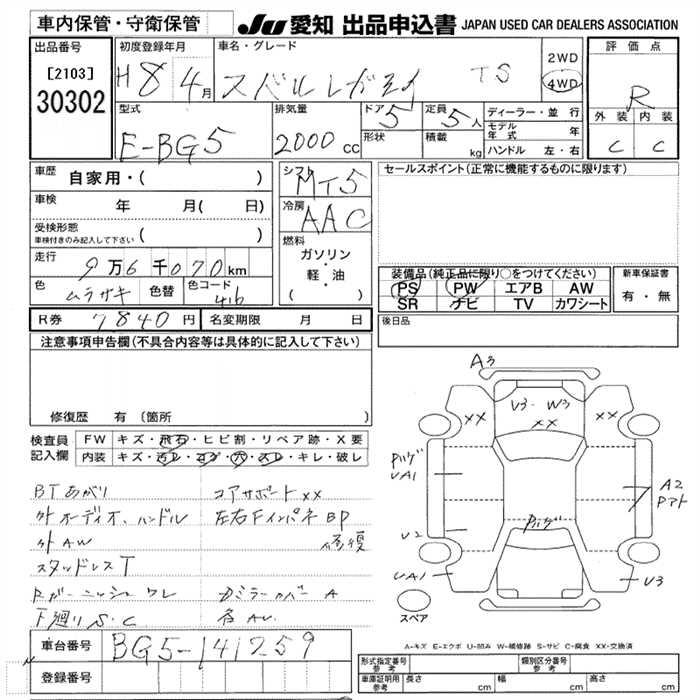 車内保管・守衛保管
JU 愛知 出品申込書 JAPAN USED CAR DEALERS ASSOCIATION
出品番号
[2103]
30302
初度登録年月
H8 4月
車名・グレード
スバルレガシィ TS
2WD
4WD
評価点
R
外装 内装
C C
型式
E-BG5
排気量
2000cc
ドア 5
形状
定員 5人
積載 kg
ディーラー・並行
モデル年式 年
ハンドル 左・右
車歴 自家用・( )
車検 年 月( 日)
受検形態
車検付きのみ記入して下さい ( )
走行 9万6千070km
色 ムラサキ 色替 色コード 416
シフト MT5
冷房 AAC
燃料
ガソリン・軽・油
( )
セールスポイント(正常に機能するものに限ります)
装備品(純正品に限り○をつけてください)
PS PW エアB AW
SR ナビ TV カワシート
新車保証書
有・無
R券 7840円 名変期限 月 日
後日品
注意事項申告欄(不具合内容等は具体的に記入して下さい)
修復歴 有(箇所
検査員記入欄
FW キズ・飛石・ヒビ割・リペア跡・X要
内装 キズ・汚レ・コゲ・穴・スレ・キレ・破レ
BTあがり コアサポートXX
外オーディオ、ハンドル 左右Fインパネ BP
外AW 修復
スタッドレスT
ワレ カバー A
下廻りS.C 各AU
車台番号 BG5-141259
登録番号
A3
V3-W3
XX
XX
XX
UA1
A2
U2
UA1
U3
スペア
A-キズ E-エクボ U-凹み W-補修跡 S-サビ C-腐食 XX-交換済
形式指定番号 参考
類別区分番号 参考
車庫証明用 参考 長さ cm 幅 cm 高さ cm